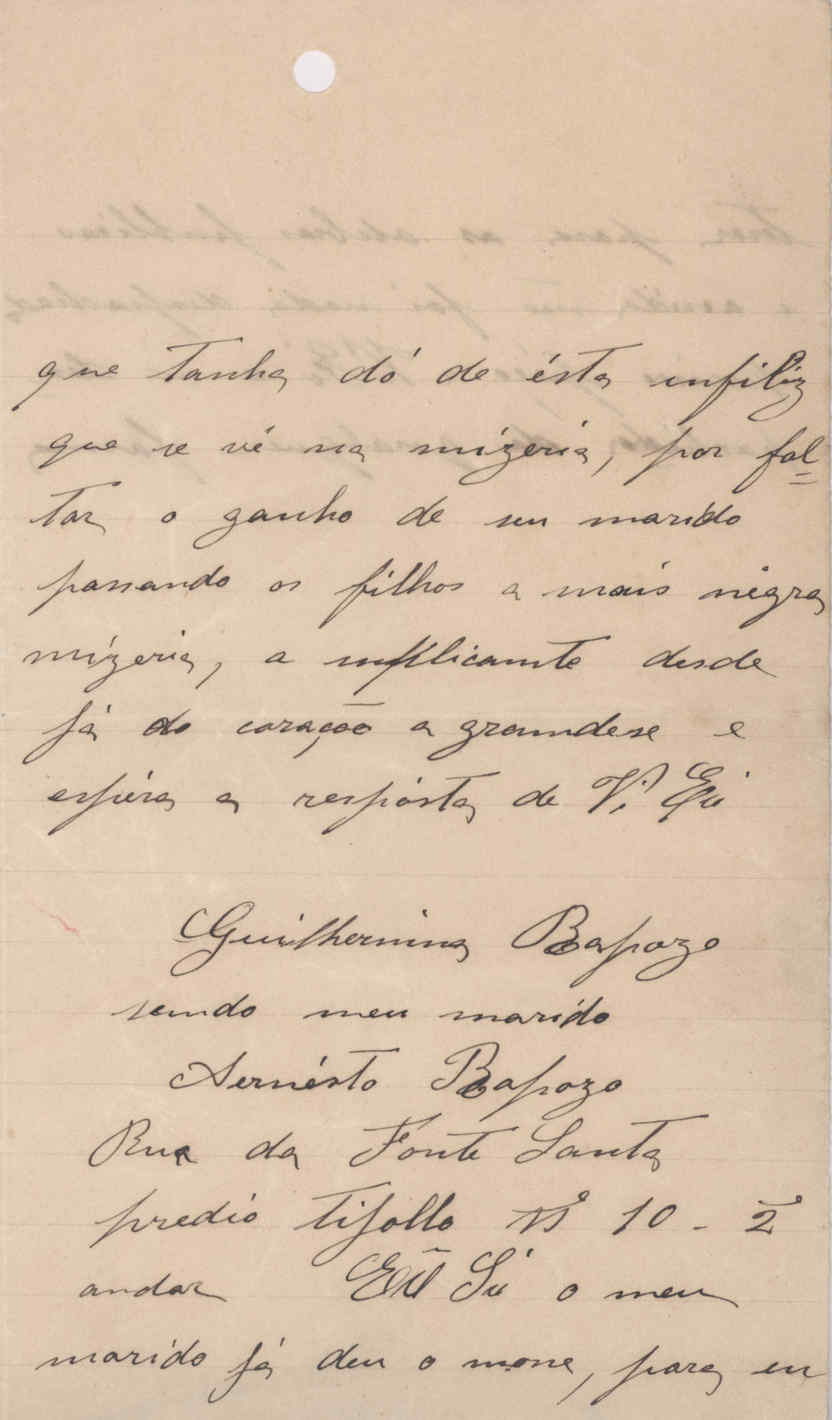 que tanha dó de ésta infiliz
que se vé na mizeria, por fal=
tar o ganho de seu marido
passando os filhos a mais négra
mizeria, a suplicante desde
já do coração agrandese e
espéra a respósta de V. Ex
Guilhermina Rapozo
sendo meu marido
Aernésto Rapozo
Rua da Fonte Santa
predio tijollo Nº 10 - 2º
andar o meu
marido já deu o mone, para eu